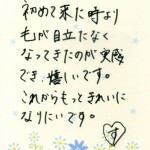 初めて来た時より
毛が目立たなく
なってきたのが実感
でき、嬉しいです。
これからもってきれいに
なりたいです。
す